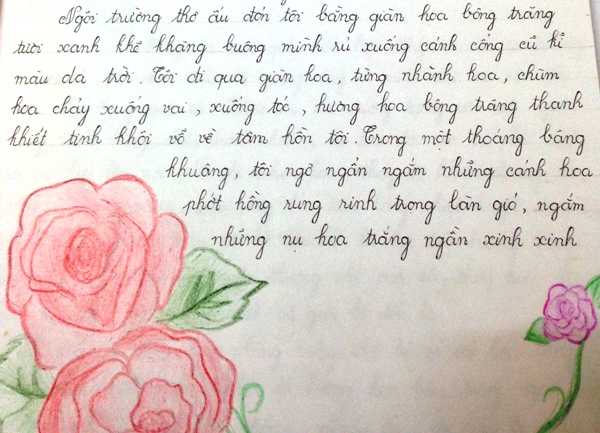 Ngôi trường thơ ấu đón tôi bằng giàn hoa bông trăng
tươi xanh khẽ khàng buông mình rủ xuống cánh cổng cũ kĩ
màu da trời. Tôi đi qua giàn hoa, từng nhành hoa, chùm
hoa chảy xuống vai, xuống tóc, hương hoa bông trăng thanh
khiết tinh khôi vỗ về tâm hồn tôi. Trong một thoáng bâng
khuâng, tôi ngơ ngẩn ngắm những cánh hoa
phớt hồng rung rinh trong làn gió, ngắm
những nụ hoa trắng ngần xinh xinh